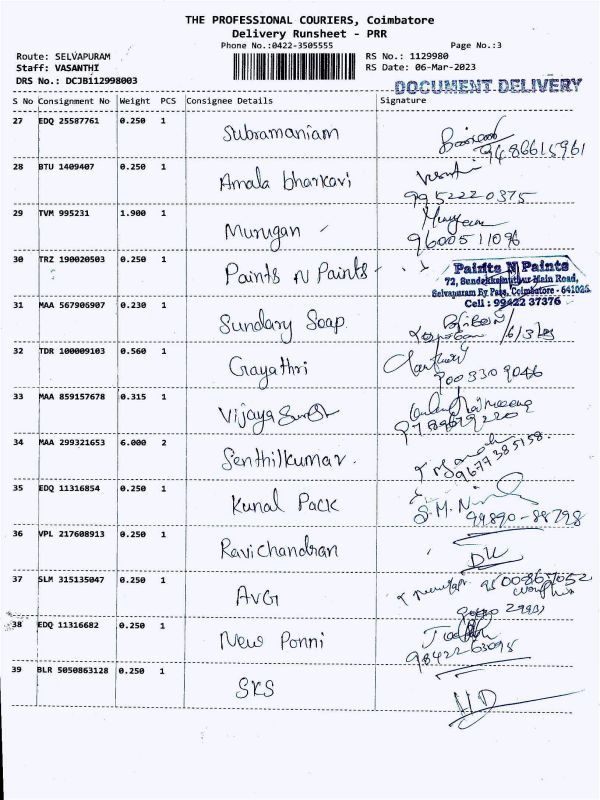 THE PROFESSIONAL COURIERS, Coimbatore
Delivery Runsheet - PRR
Phone No.:0422-3505555
Page No.:3
Route: SELVAPURAM
RS No.: 1129980
Staff: VASANTHI
RS Date: 06-Mar-2023
DRS No.: DCJB112998003
DOCUMENT DELIVERY
S No Consignment No Weight PCS Consignee Details Signature
27 EDQ 25587761 0.250 1 Subramaniam
9486615961
28 BTU 1409407 0.250 1 Amala bharkavi
9952220375
29 TVM 995231 1.900 1 Murugan
9600511096
30 TRZ 190020503 0.250 1 Paints N Paints
Paints N Paints
72, Sundakkamuthur Main Road,
Selvapuram By Pass, Coimbatore - 641026
Cell : 99422 37376
31 MAA 567906907 0.230 1 Sundary Soap
32 TDR 100009103 0.560 1 Gayathri
9003309046
33 MAA 859157678 0.315 1 Vijaya
34 MAA 299321653 6.000 2 Senthilkumar.
9677385158.
35 EDQ 11316854 0.250 1 Kunal Pack
S.M.N
99890-88798
36 VPL 217608913 0.250 1 Ravichandran
37 SLM 315135047 0.250 1 AVG
38 EDQ 11316682 0.250 1 New Ponni
9842263095
39 BLR 5050863128 0.250 1 SKS